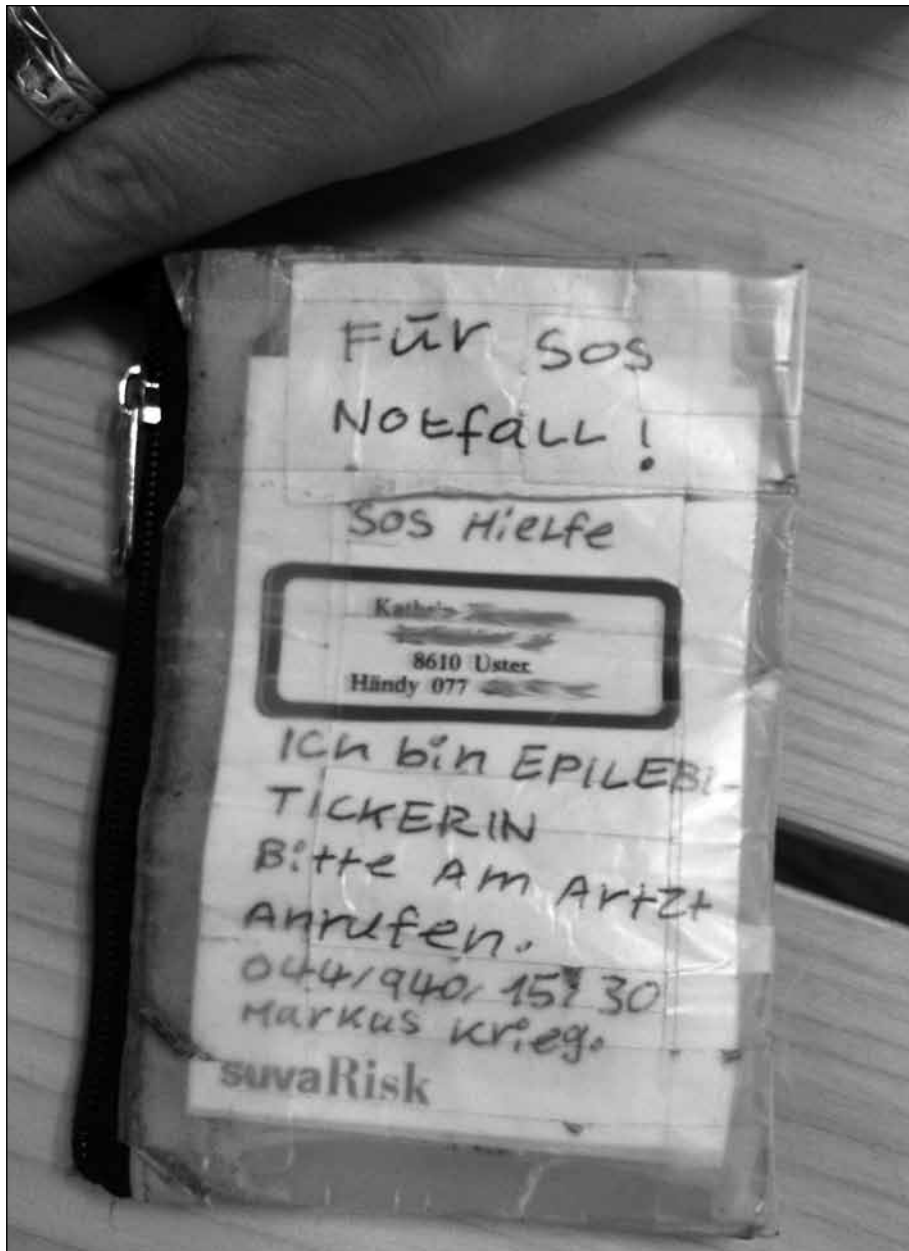 Für SOS
Notfall !
SOS Hielfe
Kathrin
8610 Uster
Händy 077
Ich bin EPILEBI-
TICKERIN
Bitte Am Artzt
Anrufen.
044/940/ 15 30
Markus Krieg.
suvaRisk